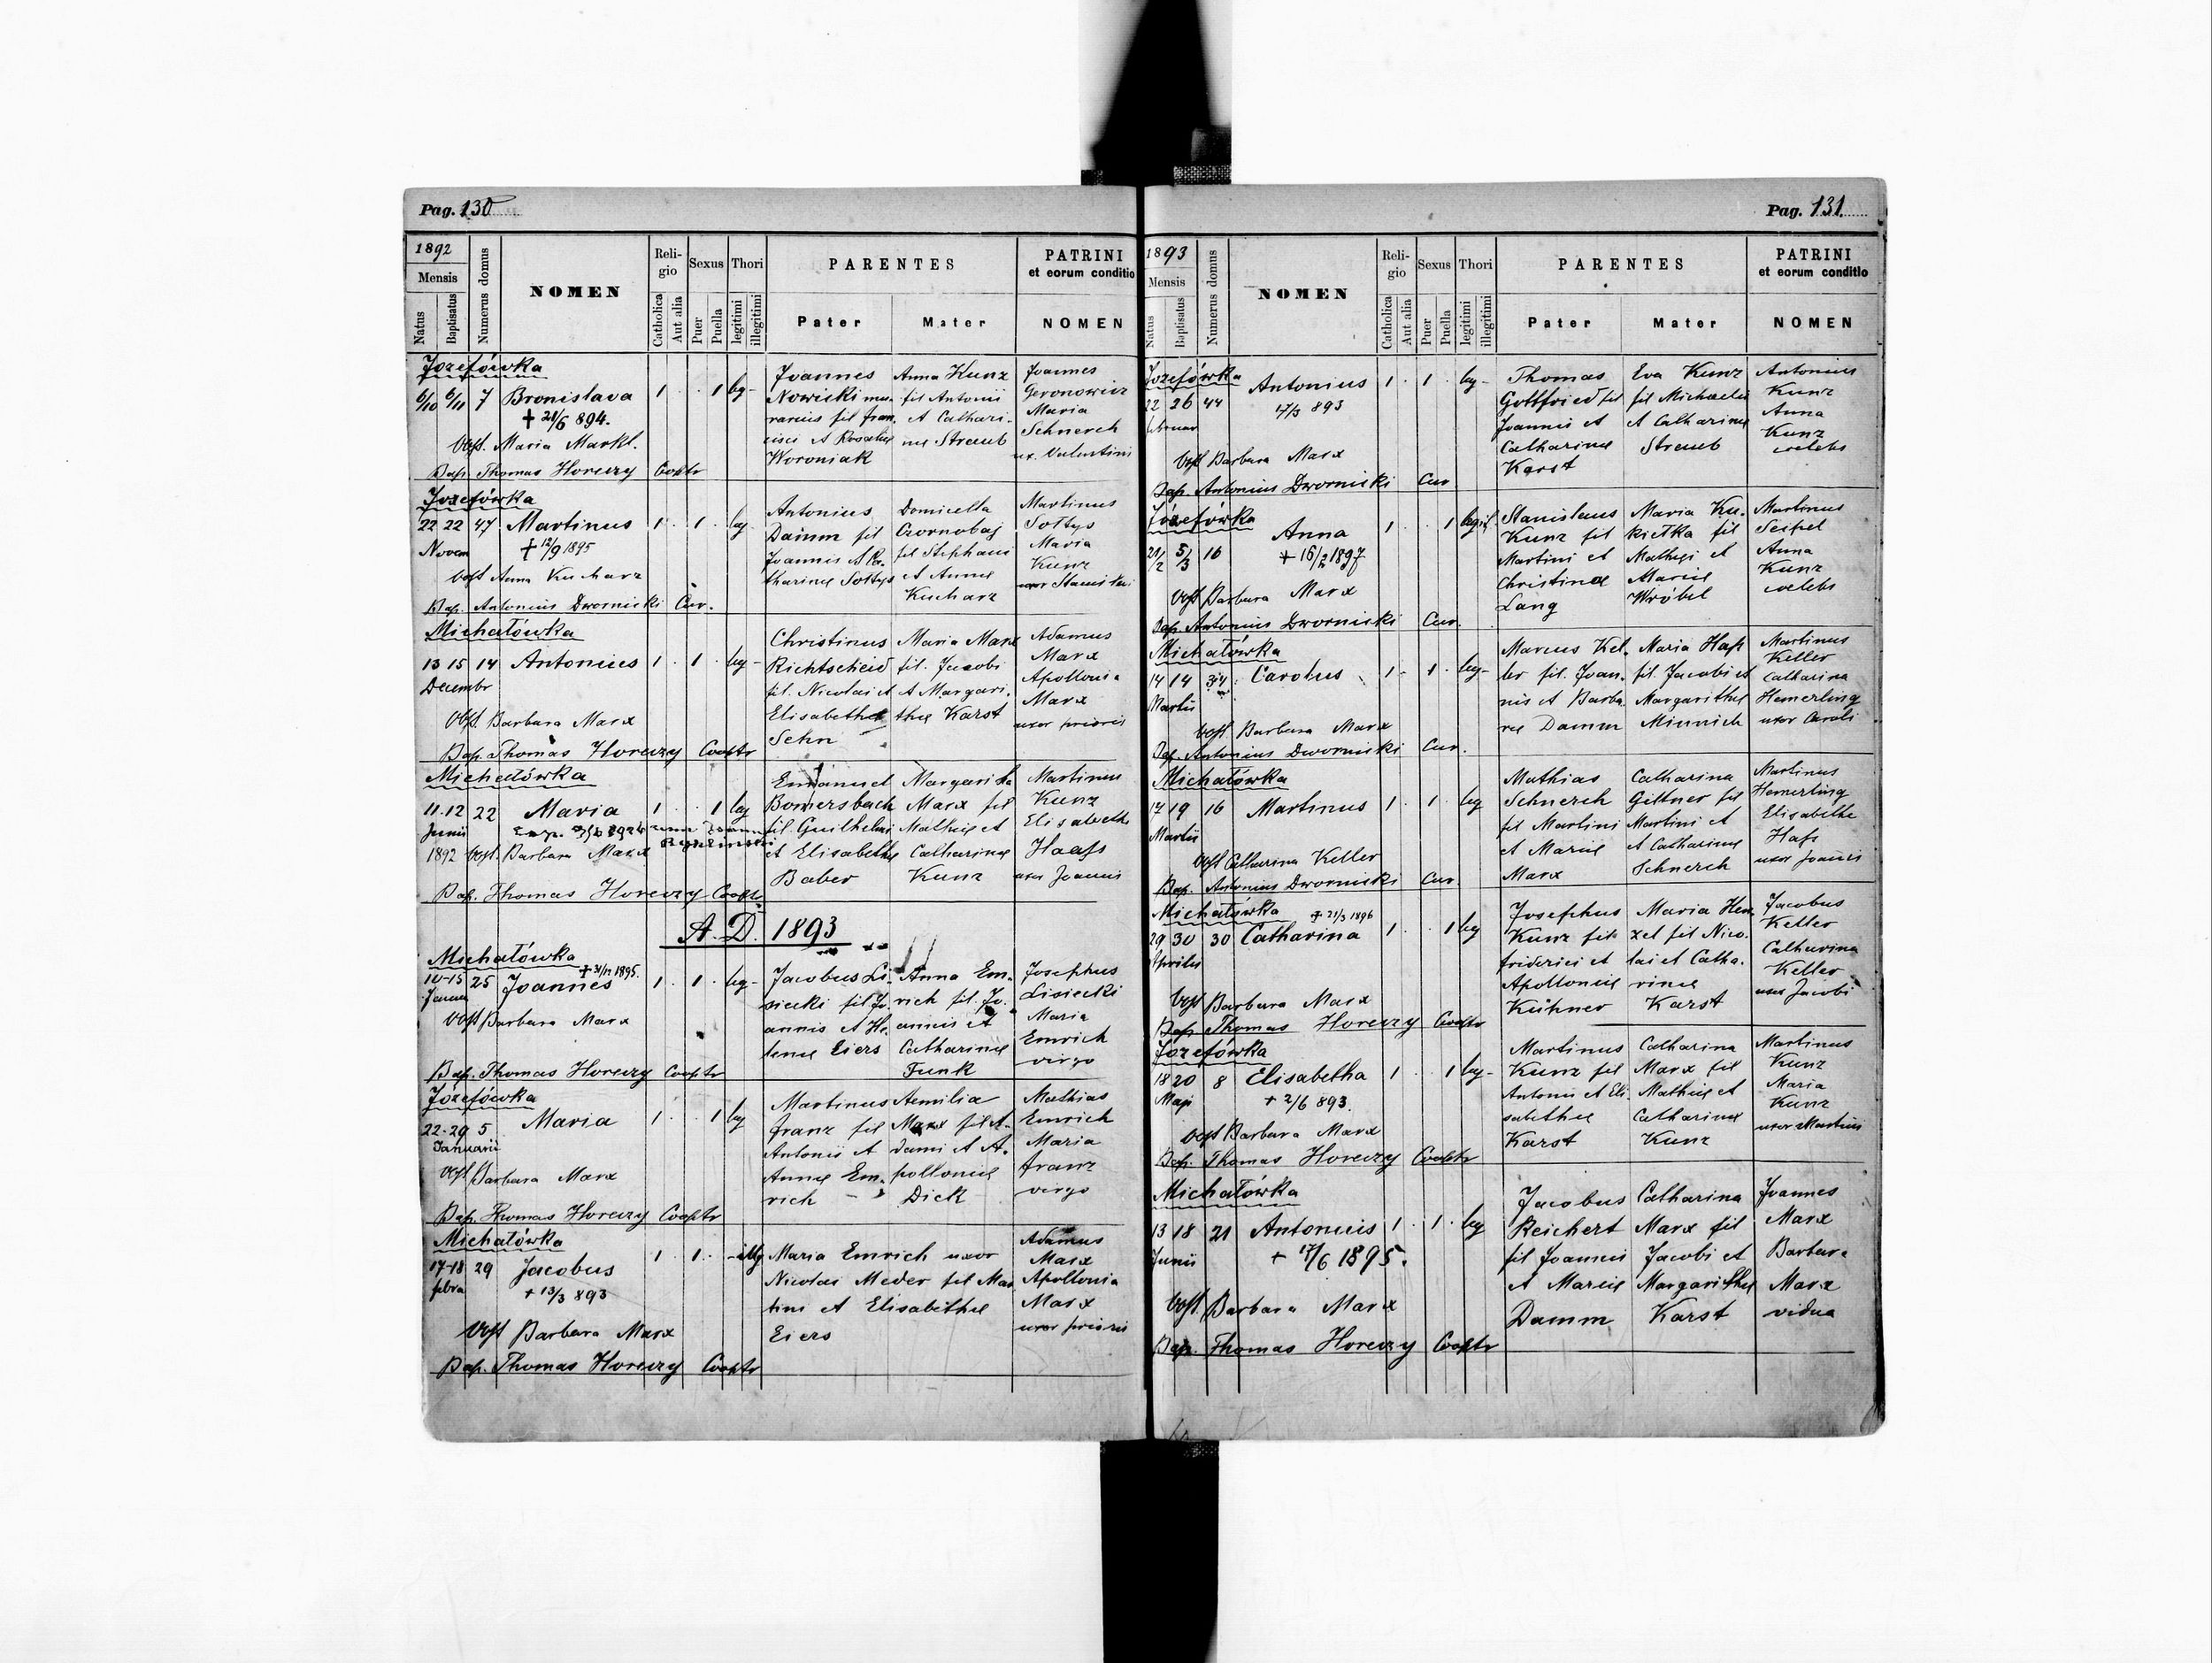 Pag. 130
1892
Mensis
Natus
Baptisatus
Numerus domus
NOMEN
Reli-
gio
Catholica
Aut alia
Sexus
Puer
Puella
Thori
legitimi
illegitimi
PARENTES
Pater
Mater
PATRINI
et eorum conditio
NOMEN
Józefówka
6/10 6/11 7 Bronislava 1 1 leg-
+ 21/6 894.
Obst. Maria Markl.
Bap. Thomas Horeczy Cooptr
Joannes
Nowicki mu-
rarius fil fran.
cisci et Rosaliae
Woroniak
Anna Kunz
fil Antonii
et Cathari-
nae Straub
Joannes
Geronowicz
Maria
Schnerch
ux. Valentini
Józefówka
22 22 47 Martinus 1 1 leg
Novem + 12/9 1895
Obst Anna Kucharz
Bap. Antonius Dwornicki Cur.
Antonius
Damm fil
Joannis et Ka-
tharinae Sołtys
Domicella
Czornobaj
fil Stephani
et Annae
Kucharz
Martinus
Sołtys
Maria
Kunz
uxor Stanislai
Michałówka
13 15 14 Antonius 1 1 leg-
Decembr
Obst. Barbara Marx
Bap. Thomas Horeczy Cooptr
Christinus
Richtscheid
fil. Nicolai et
Elisabethae
Sehn
Maria Marx
fil. Jacobi
et Margari-
thae Karst
Adamus
Marx
Apollonia
Marx
uxor prioris
Michałówka
11.12 22 Maria 1 1 leg
Junii
1892 Obst. Barbara Marx
Bap. Thomas Horeczy Cooptr
Emanuel
Bomersbach
fil. Guilhelmi
et Elisabethae
Baber
Margaritha
Marx fil
Mathiae et
Catharinae
Kunz
Martinus
Kunz
Elisabetha
Haass
uxor Joannis
A. D. 1893
Michałówka
+ 31/12 1895.
10-15 25 Joannes 1 1 leg-
Januar
Obst Barbara Marx
Bap. Thomas Horeczy Cooptr
Jacobus Li-
siecki fil Jo-
annis et He-
lenae Eiers
Anna Em-
rich fil. Jo-
annis et
Catharinae
Funk
Josephus
Lisiecki
Maria
Emrich
virgo
Józefówka
22-29 5 Maria 1 1 leg
Januarii
Obst Barbara Marx
Bap. Thomas Horeczy Cooptr
Martinus
Franz fil
Antonii et
Annae Em-
rich
Aemilia
Marx fil A-
dami et A-
polloniae
Dick
Mathias
Emrich
Maria
Franz
virgo
Michałówka
17-18 29 Jacobus 1 1 - illeg
febra + 13/3 893
Obst Barbara Marx
Bap. Thomas Horeczy Cooptr
Maria Emrich uxor
Nicolai Meder fil Mar-
tini et Elisabethae
Eiers
Adamus
Marx
Apollonia
Marx
uxor prioris
Pag. 131
1893
Mensis
Natus
Baptisatus
Numerus domus
NOMEN
Reli-
gio
Catholica
Aut alia
Sexus
Puer
Puella
Thori
legitimi
illegitimi
PARENTES
Pater
Mater
PATRINI
et eorum conditio
NOMEN
Józefówka
22 26 44 Antonius 1 1 leg-
februar 17/3 893
Obst Barbara Marx
Bap. Antonius Dwornicki Cur
Thomas
Gottfried fil
Joannis et
Catharinae
Karst
Eva Kunz
fil Michaelis
et Catharinae
Straub
Antonius
Kunz
Anna
Kunz
coelebs
Józefówka
21/2 5/3 16 Anna 1 1 legit.
+ 16/2 1897
Obst Barbara Marx
Bap. Antonius Dwornicki Cur.
Stanislaus
Kunz fil
Martini et
Christinae
Lang
Maria Ku-
kiełka fil
Mathiji et
Mariae
Wróbel
Martinus
Seipel
Anna
Kunz
coelebs
Michałówka
14 14 34 Carolus 1 1 leg-
Martii
Obst Barbara Marx
Bap. Antonius Dwornicki Cur.
Marcus Kel-
ler fil. Joan-
nis et Barba-
rae Damm
Maria Hass
fil. Jacobi et
Margarithae
Minnich
Martinus
Keller
Catharina
Hemerling
uxor Caroli
Michałówka
17 19 16 Martinus 1 1 leg
Martii
Obst Catharina Keller
Bap. Antonius Dwornicki Cur.
Mathias
Schnerch
fil Martini
et Mariae
Marx
Catharina
Gittner fil
Martini et
et Catharinae
Schnerch
Martinus
Hemerling
Elisabetha
Hass
uxor Joannis
Michałówka + 21/3 1896
29 30 30 Catharina 1 1 leg
Aprilis
Obst Barbara Marx
Bap. Thomas Horeczy Cooptr
Josephus
Kunz fil
friderici et
Apolloniae
Kühner
Maria Hen-
zel fil Nico-
lai et Catha-
rinae
Karst
Jacobus
Keller
Catharina
Keller
uxor Jacobi
Józefówka
18 20 8 Elisabetha 1 1 leg-
Maji + 2/6 893.
Obst Barbara Marx
Bap. Thomas Horeczy Cooptr
Martinus
Kunz fil
Antonii et Eli-
sabethae
Karst
Catharina
Marx fil
Mathiae et
Catharinae
Kunz
Martinus
Kunz
Maria
Kunz
uxor Martini
Michałówka
13 18 21 Antonius 1 1 leg
Junii + 17/6 1895.
Obst. Barbara Marx
Bap. Thomas Horeczy Cooptr
Jacobus
Reichert
fil Joannis
et Mariae
Damm
Catharina
Marx fil
Jacobi et
Margarithae
Karst
Joannes
Marx
Barbara
Marx
vidua